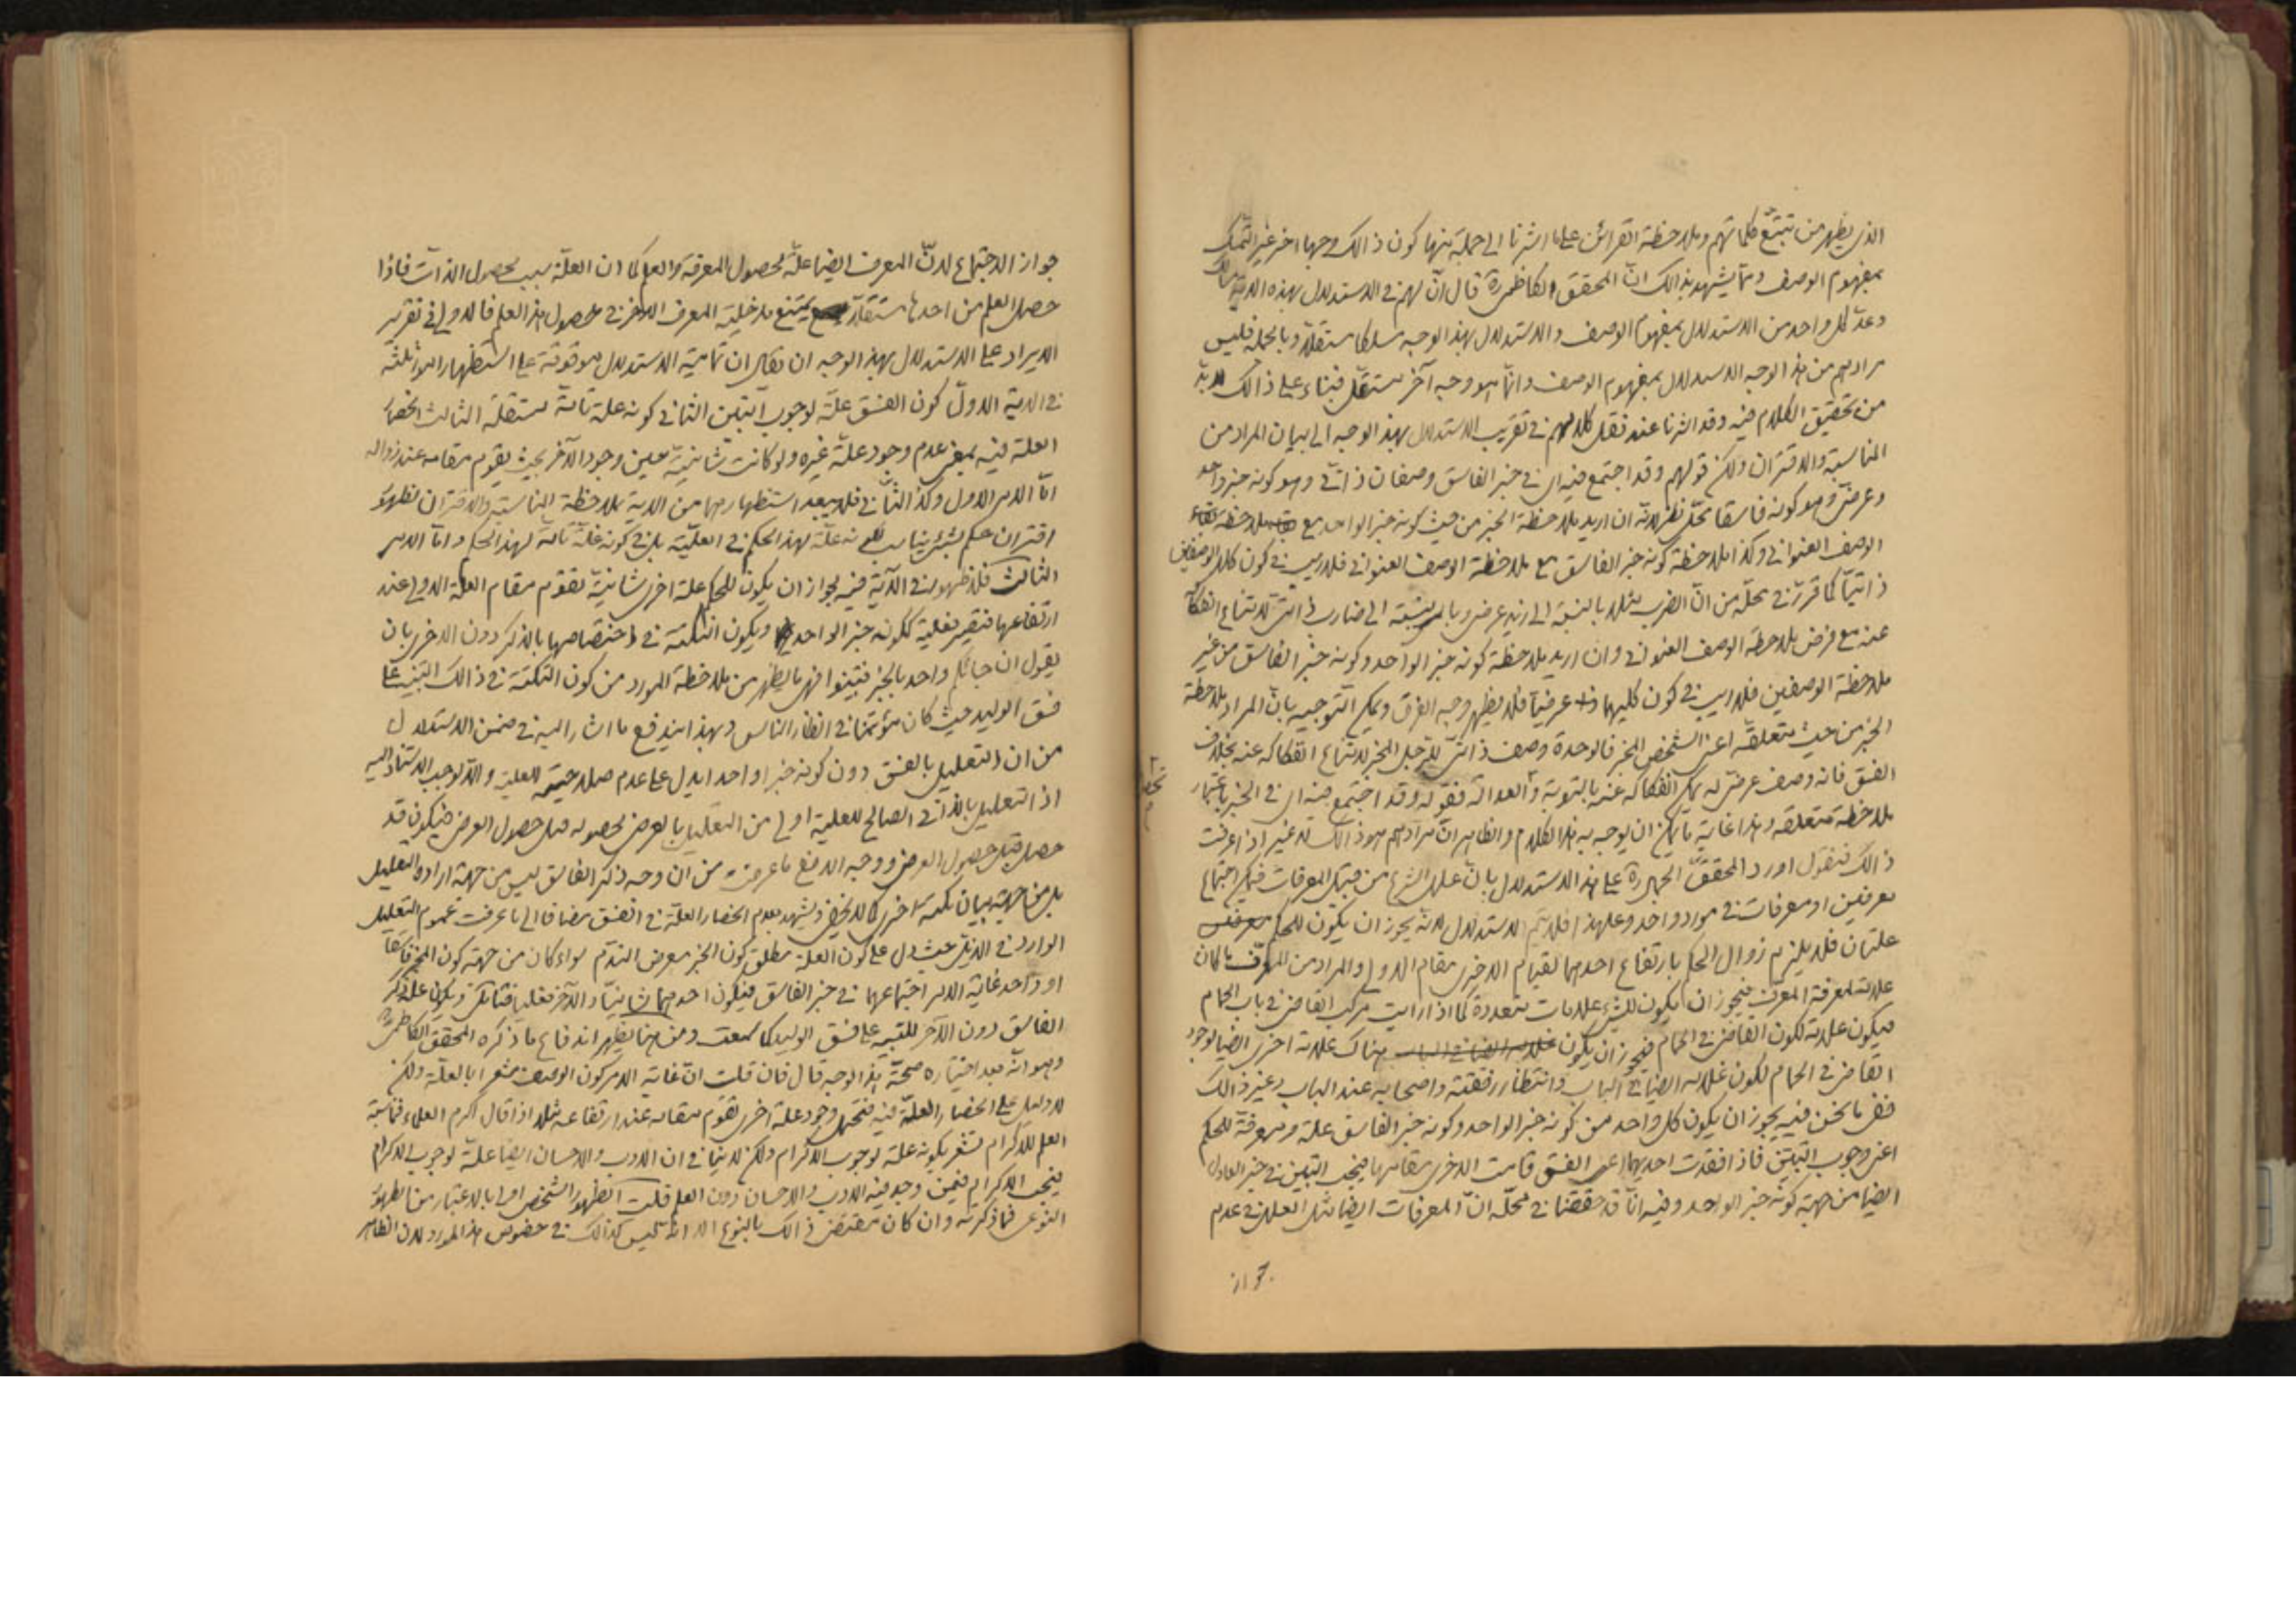 الذي يظهر من تتبّع كلماتهم وملاحظة القرائن على ما اشرنا الى جملة منها كون ذالك وجها اخر غير التمسك
بمفهوم الوصف وممّا يشهد بذالك انّ المحقق الكاظمي ره قال انّ لهم في الاستدلال بهذه الاية مسالك
وعدّ كل واحد من الاستدلال بمفهوم الوصف والاستدلال بهذا الوجه مسلكا مستقلا وبالجملة فليس
مرادهم من هذا الوجه الاستدلال بمفهوم الوصف وانّما هو وجه آخر مستقل فبناء على ذالك لا بدّ
من تحقيق الكلام فيه وقد اشرنا عند نقل كلامهم في تقريب الاستدلال بهذا الوجه الى بيان المراد من
المناسبة والاقتران ولكن قولهم وقد اجتمع فيه اى في خبر الفاسق وصفان ذاتي وهو كونه خبر واحد
وعرضي وهو كونه فاسقا محلّ نظر لانّه ان اريد ملاحظة الخبر من حيث كونه خبر الواحد مع ملاحظة بقاء
الوصف العنواني وكذا ملاحظة كونه خبر الفاسق مع ملاحظة الوصف العنواني فلا ريب في كون كلا الوصفين
ذاتيّا كما قرّر في محلّه من انّ الضرب مثلا بالنسبة الى زيد عرضي وبالنسبة الى ضارب ذاتيّ لامتناع انفكاكه
عنه مع فرض ملاحظة الوصف العنواني وان اريد ملاحظة كونه خبر الواحد وكونه خبر الفاسق من غير
ملاحظة الوصفين فلا ريب في كون كليهما عرضيّا فلا يظهر وجه الفرق ويمكن التوجيه بانّ المراد ملاحظة
الخبر من حيث متعلقه اعني الشخص المخبر فالوحدة وصف ذاتيّ للرّجل المخبر لامتناع انفكاكه عنه بخلاف
الفسق فانه وصف عرضيّ له يمكن انفكاكه عنه بالتوبة والعدالة فقوله وقد اجتمع فيه اى في الخبر باعتبار
ملاحظة متعلقه وهذا غاية ما يمكن ان يوجه به هذا الكلام والظاهر انّ مرادهم هو ذالك لا غير اذا عرفت
ذالك فنقول اورد المحقق الجمال ره على هذا الاستدلال بان علل الشرع من قبيل المعرفات فيمكن اجتماع
معرفين او معرفات في مورد واحد وعلى هذا فلا يتم الاستدلال لانّه يجوز ان يكون للحكم
علتان فلا يلزم زوال الحكم بارتفاع احدهما لقيام الاخرى مقام الاولى والمراد من المعرّف ما كان
علامة لمعرفة المعرّف فيجوز ان يكون للشئ علامات متعددة كما اذا رايت مركب القاضي في باب الحمام
فيكون علامة لكون القاضي في الحمام فيجوز ان يكون هناك علامة اخرى ايضا لوجود
القاضي في الحمام لكون غلامه ايضا في الباب وانتظار رفقته واصحابه عند الباب وغير ذالك
ففي ما نحن فيه يجوز ان يكون كل واحد من كونه خبر الواحد وكونه خبر الفاسق علة ومعرفة للحكم
اعني وجوب التبيّن فاذا فقدت احديهما اعني الفسق قامت الاخرى مقامها فيجب التبين في خبر العادل
ايضا من جهة كونه خبر الواحد وفيه انّا قد حققنا في محلّه انّ المعرفات ايضا مثل العلل في عدم
جواز
جواز الاجتماع لانّ المعرف ايضا علّة لحصول المعرفة والعلم كما ان العلّة سبب لحصول الذات فاذا
حصل العلم من احدها مستقلا يمتنع مدخلية المعرف الاخر في حصول هذا العلم فالاولى في تقرير
الايراد على الاستدلال بهذا الوجه ان يقال ان تمامية الاستدلال موقوفة على استظهار امور ثلثة
في الاية الاول كون الفسق علّة لوجوب التبين الثاني كونه علة تامة مستقلة الثالث انحصار
العلة فيه بمعنى عدم وجود علّة غيره ولو كانت شانيّة حين وجود الآخر بحيث يقوم مقامه عند زواله
امّا الامر الاول وكذا الثاني فلا يبعد استظهارهما من الاية بملاحظة المناسبة والاقتران لظهور
اقتران حكم بشئ يناسب في العلّية بل في كونه علّة تامة لهذا الحكم وامّا الامر
الثالث فلا ظهور في الآية فيه لجواز ان يكون للحكم علة اخرى شانيّة تقوم مقام العلة الاولى عند
ارتفاعها فتصير فعلية ككونه خبر الواحد ويكون النكتة في اختصاصها بالذكر دون الاخرى بان
يقول ان جائكم واحد بالخبر فتبينوا فهي ما يظهر من ملاحظة المورد من كون النكتة في ذالك التنبيه على
فسق الوليد حيث كان مؤتمنا في انظار الناس وبهذا يندفع ما اشار اليه في ضمن الاستدلال
من ان التعليل بالفسق دون كونه خبرا واحدا يدل على عدم صلاحيته للعلية والّا لوجب الاستناد اليه
اذ التعليل بالذاتي الصالح للعلية اولى من التعليل بالعرضي لحصوله قبل حصول العرضي فيكون قد
حصل قبل حصول العرضي ووجه الدفع ما عرفت من ان وجه ذكر الفاسق ليس من جهة ارادة التعليل
بل من جهة بيان نكتة اخرى كما لا يخفى ويشهد بعدم انحصار العلّة في الفسق مضافا الى ما عرفت عموم التعليل
الوارد في الذيل حيث دل على كون العلة مطلق كون الخبر معرض التندّم سواء كان من جهة كون المخبر فاسقا
او واحد غاية الامر اجتماعهما في خبر الفاسق فيكون احدهما شانيّا والآخر فعليا فتامل ويكون علة ذكر
الفاسق دون الآخر للتنبيه على فسق الوليد كما سمعت ومن هنا يظهر اندفاع ما ذكره المحقق الكاظمي ره
وهو انّه بعد اختياره صحّة هذا الوجه قال فان قلت انّ غاية الامر كون الوصف مشعرا بالعلّة ولكن
لا دليل على انحصار العلّة فيه فتحتمل وجود علّة اخرى تقوم مقامه عند ارتفاعه مثلا اذا قال اكرم العلماء فمناسبة
العلم للاكرام تشعر بكونه علة لوجوب الاكرام ولكن لا ينافي ان الادب والاحسان ايضا علّة لوجوب الاكرام
فيجب الاكرام فيمن وجد فيه الادب والاحسان دون العلم قلت الظهور الشخصي اولى بالاعتبار من الظهور
النوعي فما ذكرته وان كان مقتضى ذالك بالنوع الا انّه ليس كذالك في خصوص هذا المورد لان الظاهر